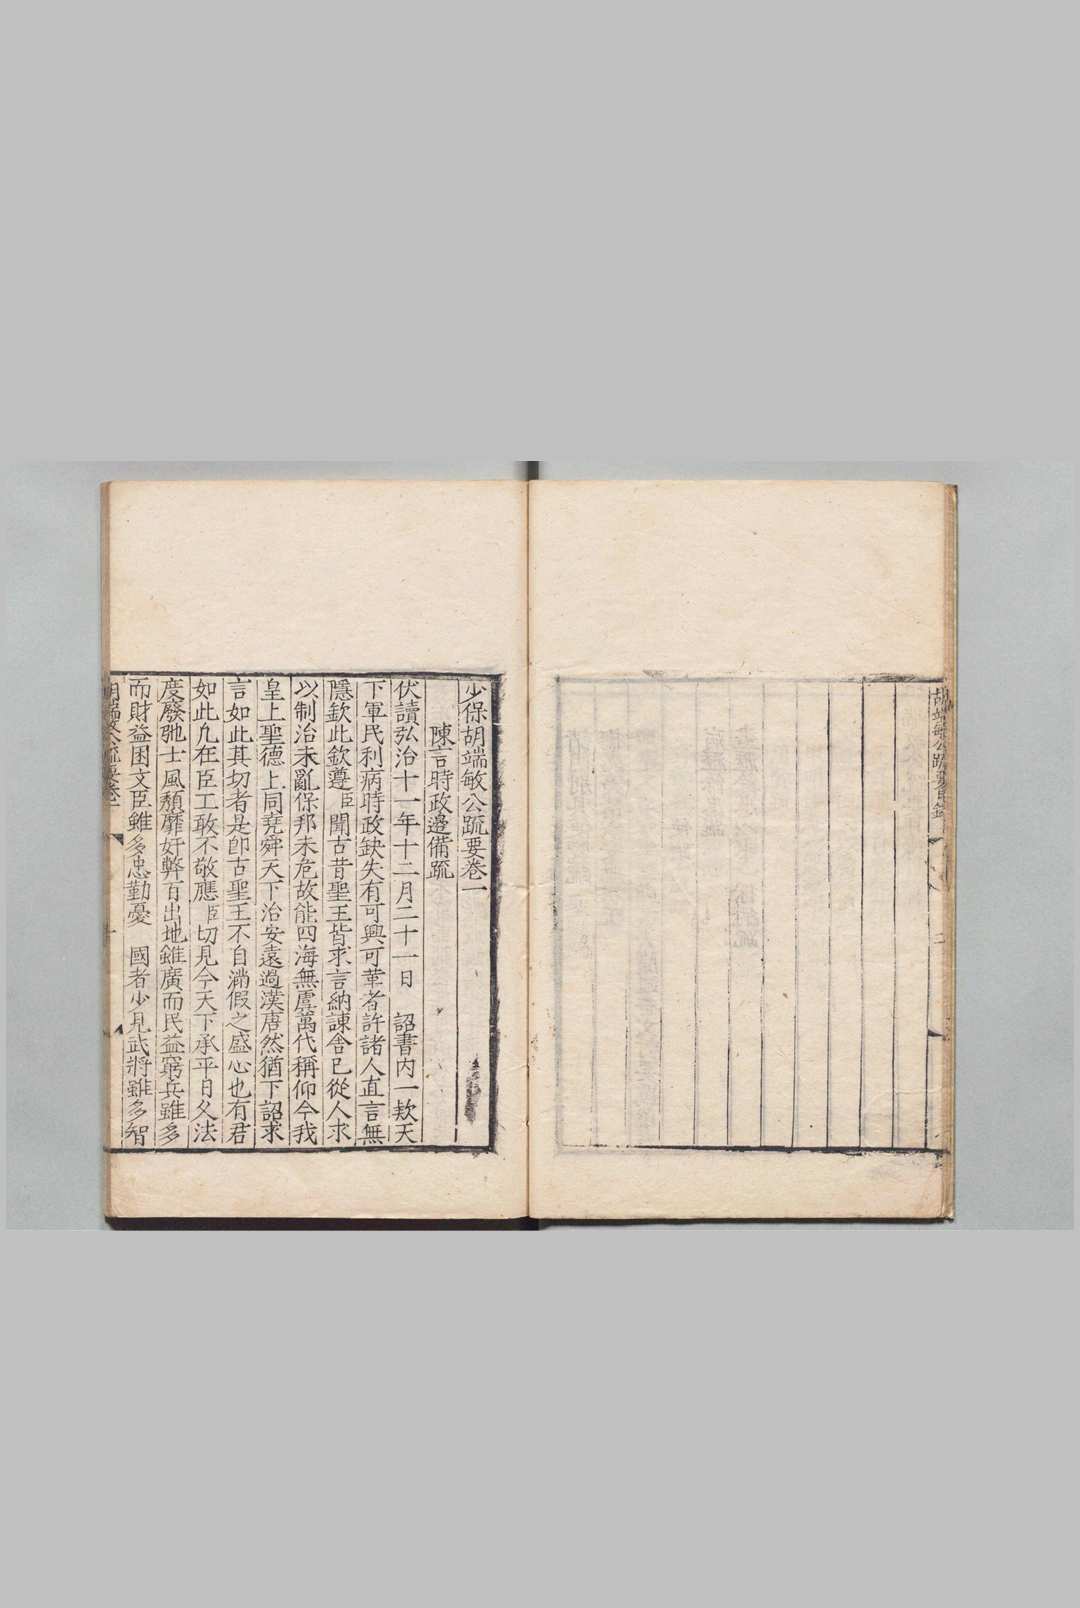 胡端敏公疏要目錄
二
少保胡端敏公疏要卷一
陳言時政邊備疏
伏讀弘治十一年十二月二十一日 詔書內一欵天
下軍民利病時政缺失有可興可革者許諸人直言無
隱欽此欽遵臣聞古昔聖王皆求言納諫舍己從人求
以制治未亂保邦未危故能四海無虞萬代稱仰今我
皇上聖德上同堯舜天下治安遠過漢唐然猶下詔求
言如此其切者是卽古聖王不自滿假之盛心也有君
如此凢在臣工敢不敬應臣切見今天下承平日久法
度廢弛士風頽靡奸弊百出地雖廣而民益窮兵雖多
而財益困文臣雖多忠勤憂 國者少見武將雖多智
胡端敏公疏要卷一